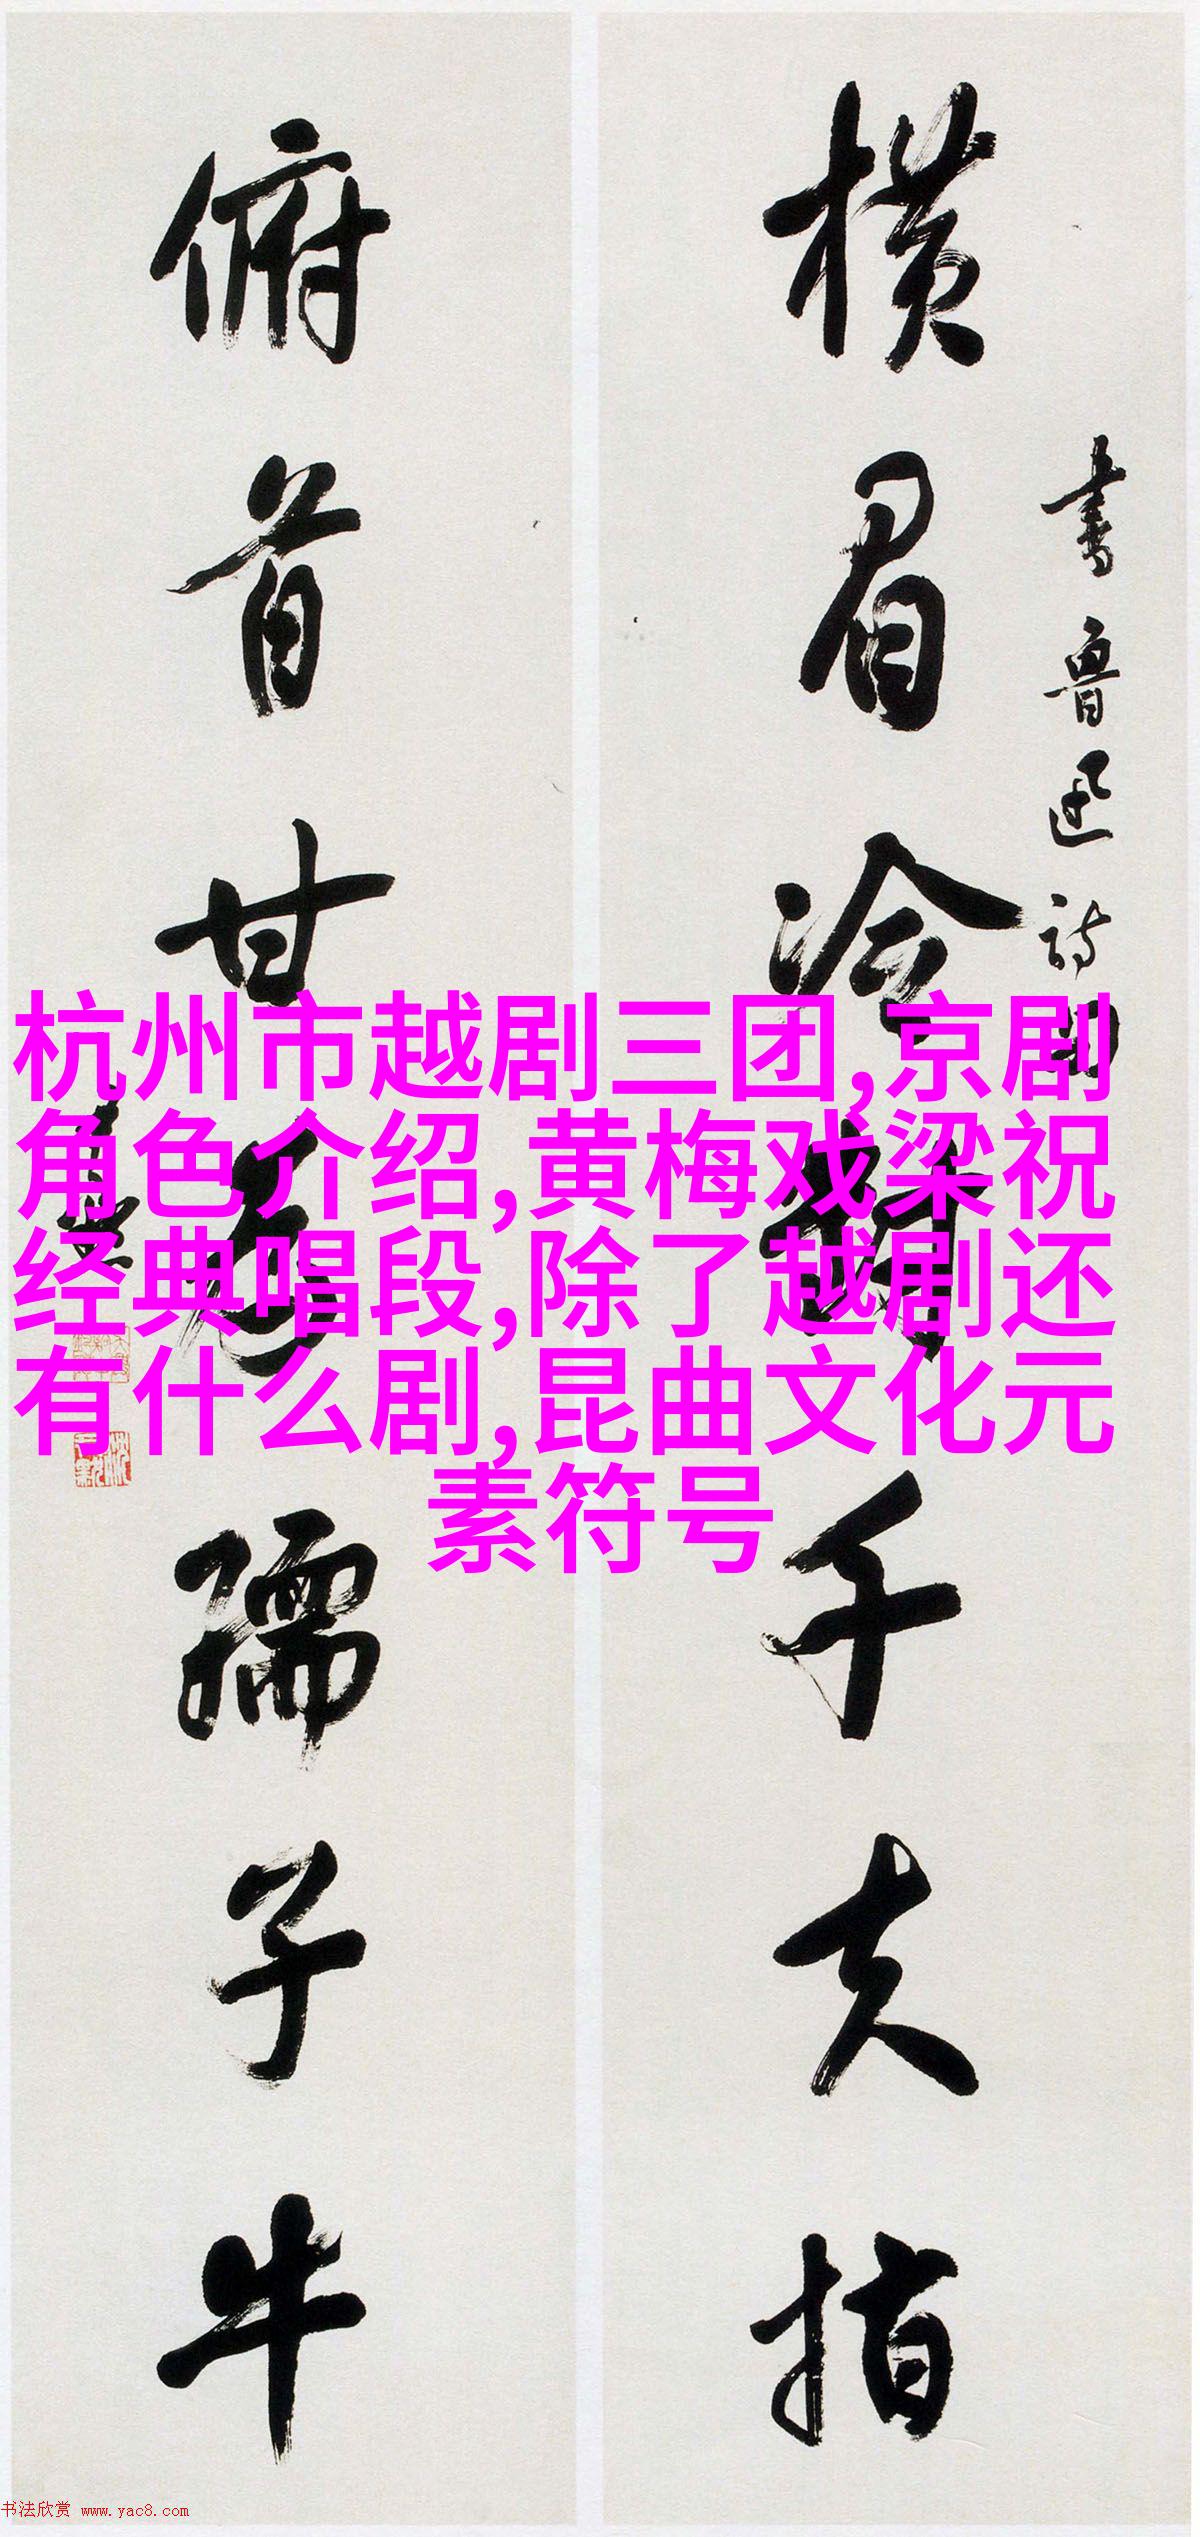 横眉冷对千夫指
书鲁迅诗句
俯首甘为孺子牛
杭州市越剧三团,京剧
角色介绍,黄梅戏梁祝
经典唱段,除了越剧还
有什么剧,昆曲文化元
素符号
书法欣赏 www.yac8.com